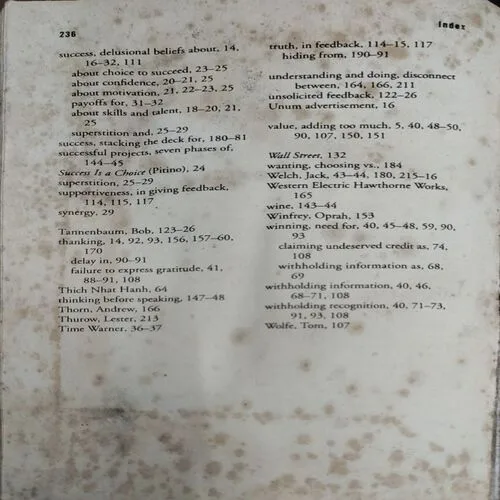 236
Index
success, delusional beliefs about, 14,
16–32, 111
about choice to succeed, 23–25
about confidence, 20–21, 25
about motivation, 21, 22–23, 25
payoffs for, 31–32
about skills and talent, 18–20, 21,
25
superstition and, 25–29
success, stacking the deck for, 180–81
successful projects, seven phases of,
144–45
Success Is a Choice (Pitino), 24
superstition, 25–29
supportiveness, in giving feedback,
114, 115, 117
synergy, 29
Tannenbaum, Bob, 123–26
thanking, 14, 92, 93, 156, 157–60,
170
delay in, 90–91
failure to express gratitude, 41,
88–91, 108
Thich Nhat Hanh, 64
thinking before speaking, 147–48
Thorn, Andrew, 166
Thurow, Lester, 213
Time Warner, 36–37
truth, in feedback, 114–15, 117
hiding from, 190–91
understanding and doing, disconnect
between, 164, 166, 211
unsolicited feedback, 122–26
Unum advertisement, 16
value, adding too much, 5, 40, 48–50,
90, 107, 150, 151
Wall Street, 132
wanting, choosing vs., 184
Welch, Jack, 43–44, 180, 215–16
Western Electric Hawthorne Works,
165
wine, 143–44
Winfrey, Oprah, 153
winning, need for, 40, 45–48, 59, 90,
93
claiming undeserved credit as, 74,
108
withholding information as, 68,
69
withholding information, 40, 46,
68–71, 108
withholding recognition, 40, 71–73,
91, 93, 108
Wolfe, Tom, 107